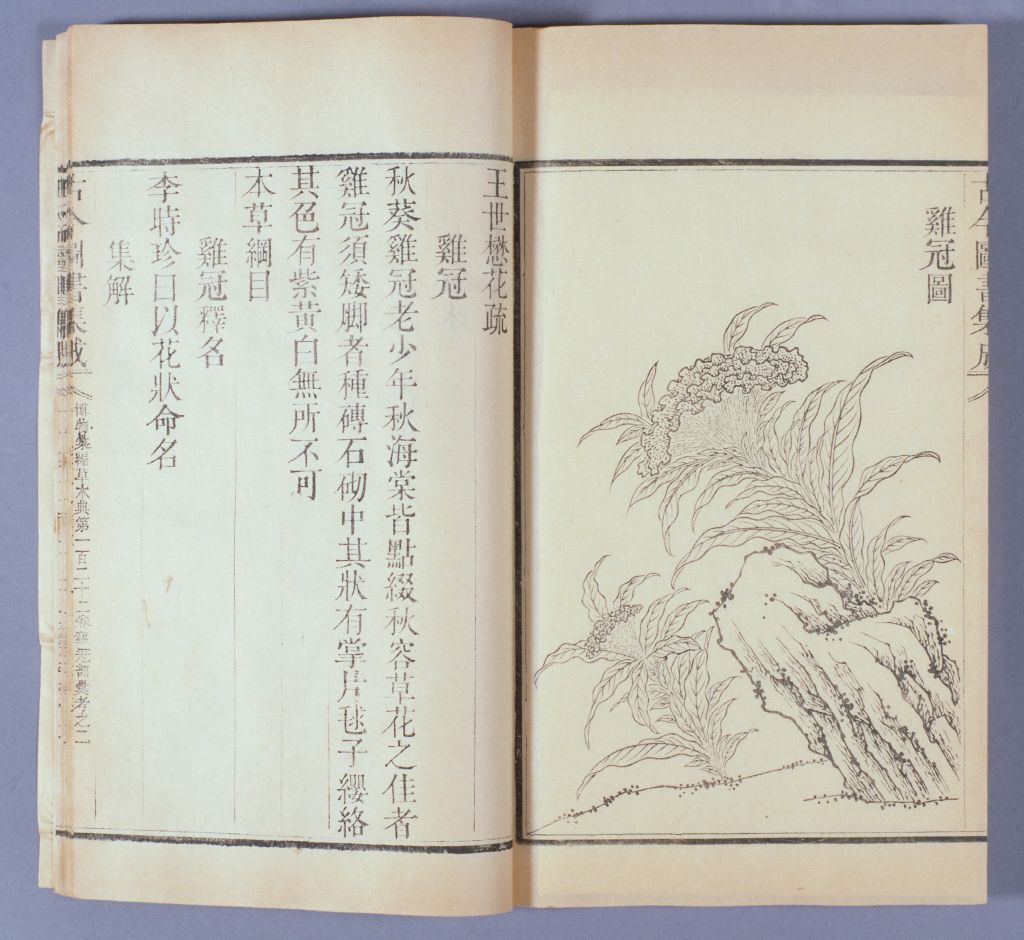 古今圖書集成
雞冠圖
王世懋花疏
雞冠
秋葵雞冠老少年秋海棠皆點綴秋容草花之佳者
雞冠須矮脚者種磚石砌中其狀有掌片毬子纓絡
其色有紫黃白無所不可
本草綱目
雞冠釋名
李時珍曰以花狀命名
集解
古今圖書集成
博物彙編草木典第一百二十二卷雞冠部彙考之二